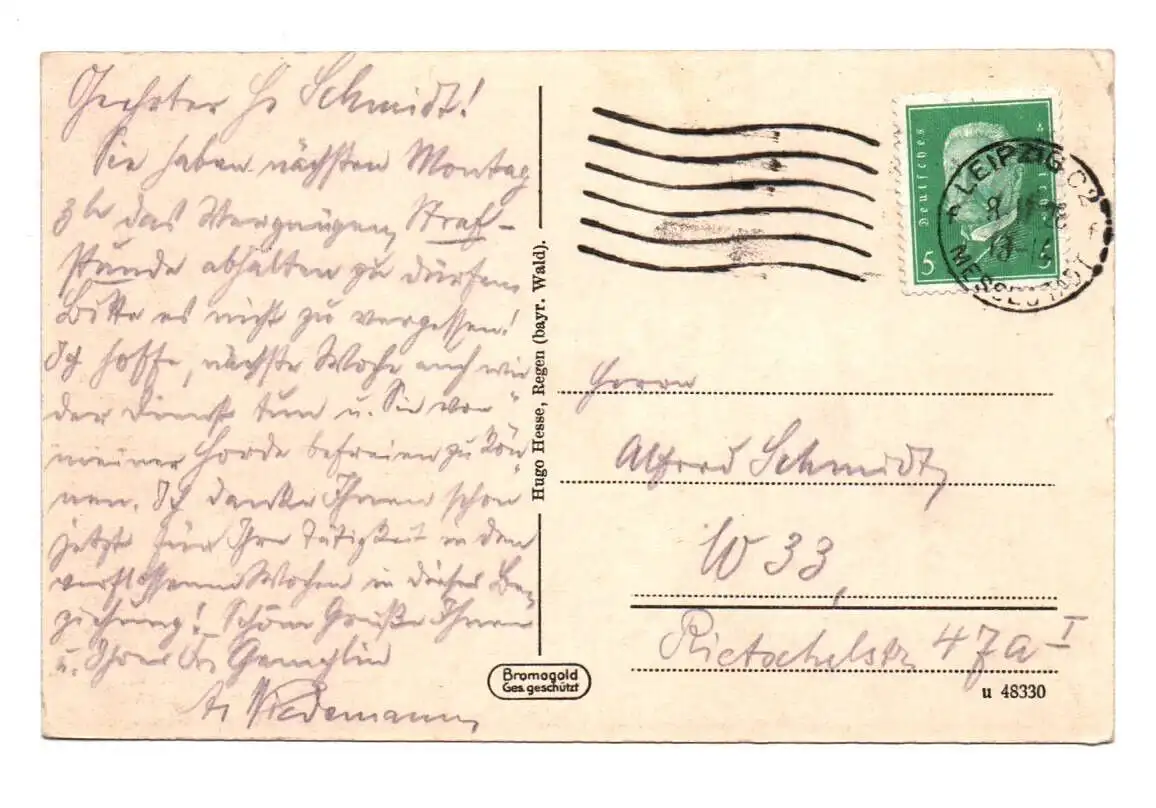 Geehrter H. Schmidt!
Sie haben nächsten Montag
3h das Vergnügen, Straf-
stunde abhalten zu dürfen.
Bitte es nicht zu vergessen!
Ich hoffe, nächste Woche auch wie
der Dienst tun u. Sie von
meiner Horde befreien zu kön-
nen. Ich danke Ihnen schon
jetzt für Ihre Tätigkeit in den
verflossenen Wochen in dieser Be-
ziehung! Schöne Grüße Ihnen
u. Ihrer Gemahlin
A. Wiedemann
Hugo Hesse, Regen (bayr. Wald).
Bromogold
Ges. geschützt
Deutsches Reich
5 5
LEIPZIG C2
8. 28
MESSESTADT
Herrn
Alfred Schmidt,
W 33,
Rietschelstr 47a I
u 48330